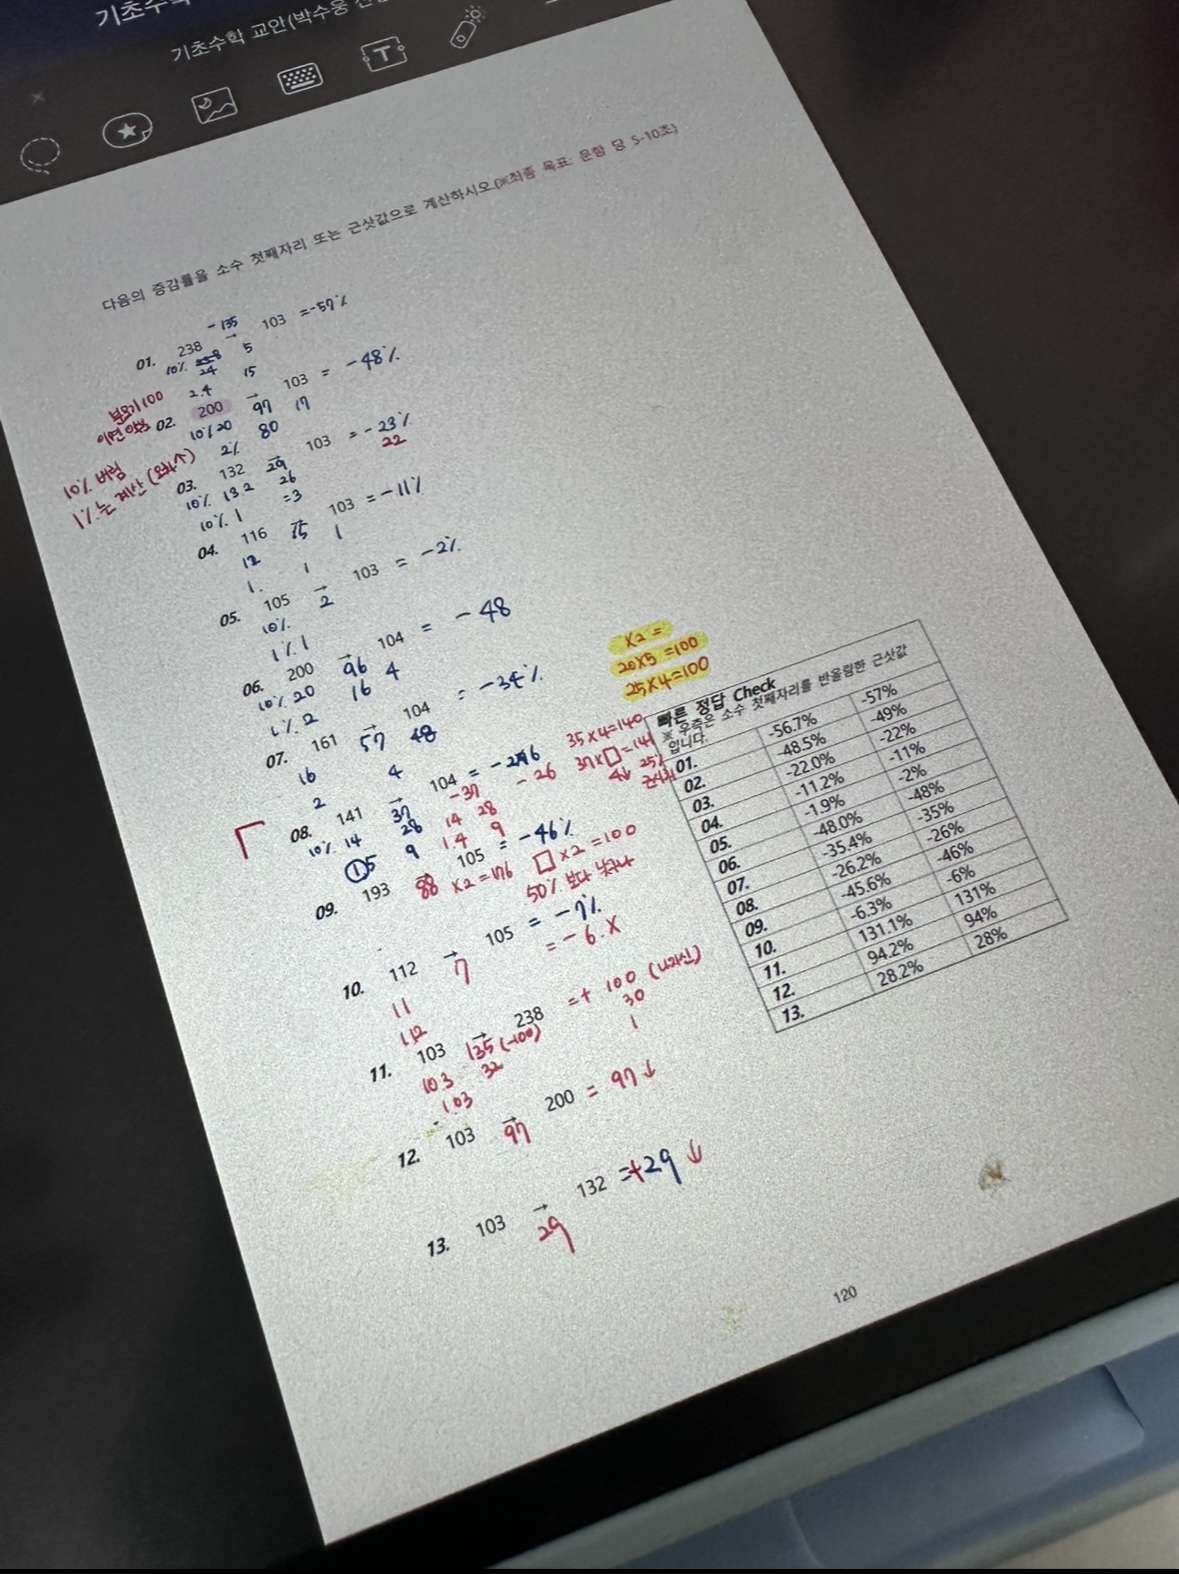 기초수학
기초수학 교안(박수웅
다음의 증감률을 소수 첫째자리 또는 근삿값으로 계산하시오.(※최종 목표: 문항 당 5-10초)
-135
01. 238 → 103 =-57%
10% 5
24 15
2.4
분모가 100
02. 200 → 103 = -48%
10% 20 97 17
2% 80
10% 버림
1%는 계산
03. 132 → 103 = -23%
29 22
10% 13.2 26
10% 1 =3
04. 116 → 103 =-11%
15
12 1
1. 1
05. 105 → 103 = -2%
10% 2
1% 1
06. 200 → 104 = -48
10% 20 96 4
1% 2 16
07. 161 → 104 = -34%
16 57 48
2 4
08. 141 → 104 =
-37 - 26
10% 14 37 14 28
28 1.4 9
①5 9
35×4=140
37×□=141
4↓ 25%
×2 =
20×5 =100
25×4=100
09. 193 → 105 = -46%
88 ×2=176 □×2=100
50% 보다
10. 112 → 105 = -7%
7 = -6.X
11
1.12
11. 103 → 238 =+ 100
135(-100) 30
10.3 32 1
1.03
12. 103 → 200 = 97↓
97
13. 103 → 132 =+29 ↓
29
빠른 정답 Check
※ 우측은 소수 첫째자리를 반올림한 근삿값
입니다.
01. -56.7% -57%
02. -48.5% -49%
03. -22.0% -22%
04. -11.2% -11%
05. -1.9% -2%
06. -48.0% -48%
07. -35.4% -35%
08. -26.2% -26%
09. -45.6% -46%
10. -6.3% -6%
11. 131.1% 131%
12. 94.2% 94%
13. 28.2% 28%
120